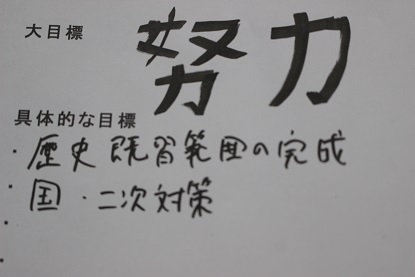 大目標
努力
具体的な目標
・歴史 既習範囲の完成
・国・二次対策